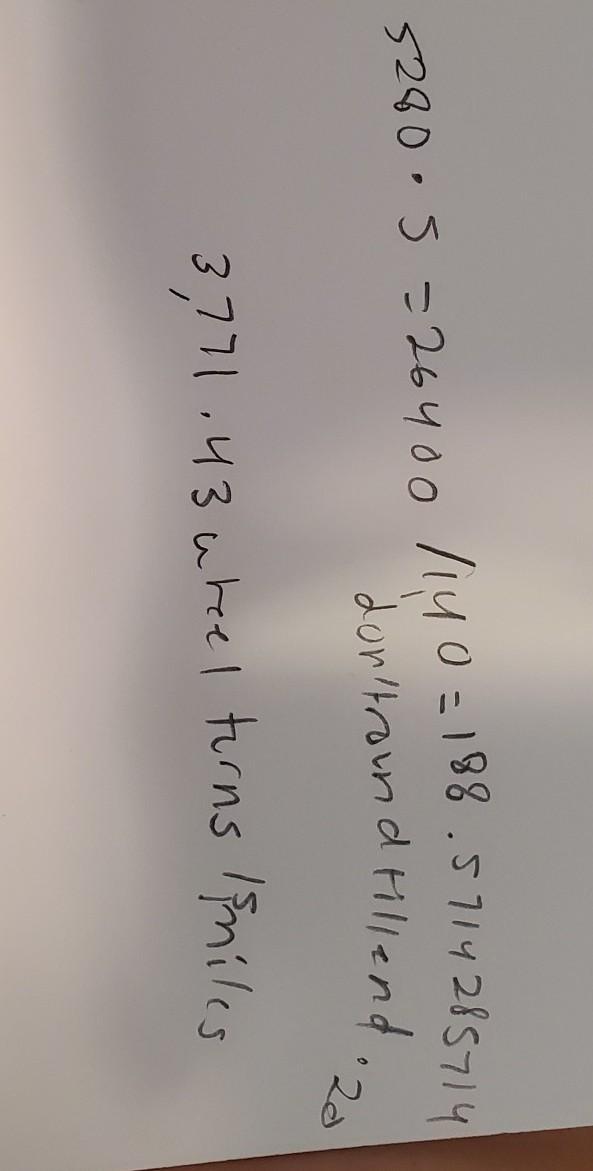 5280 · 5 = 26400 / 140 = 188.5714285714
don't round till end · 20
3,771.43 wheel turns / 5 miles